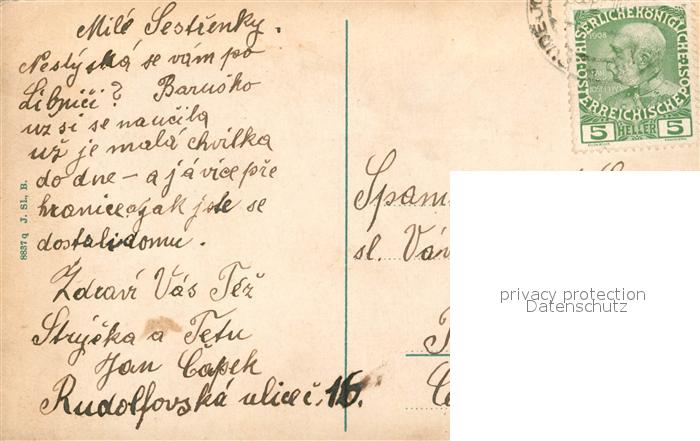 Milé Sestřenky.
Neslýská se vám po
Libniči? Baruško
uz si se naučila
už je malá chvilka
do dne – a já více pře
hranice jak jste se
dostali domu.
Zdraví Vás Též
Strýčka a Tetu
Jan Čapek
Rudolfovská ulice č. 16.
8837 q J. Sl., B.
Spam
sl. Váv
KAISERLICHE KÖNIGLICHE
1908
ÖSTERREICHISCHE
5 HELLER 5
privacy protection
Datenschutz